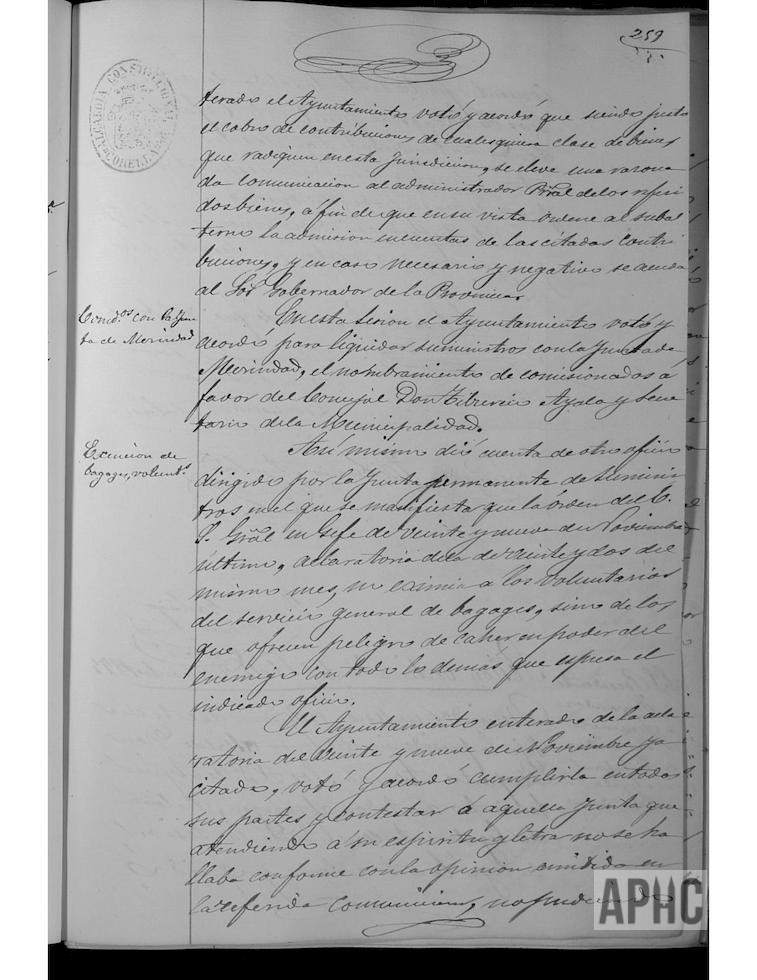 259
ALCALDIA CONSTITUCIONAL
CORELLA
terado el Ayuntamiento votó y acordó que siendo justo
el cobro de contribuciones de cualesquiera clase de bienes
que radiquen en esta Jurisdicion, se eleve una razona
da comunicacion al administrador Pral de los referi
dos bienes, á fin de que en su vista ordene al subal
terno la admision en cuentas de las citadas contri
buciones, y en caso necesario y negativo se acuda
al Sor Gobernador de la Provincia.
Comdos con la Jun
ta de Merindad
En esta Sesion el Ayuntamiento votó y
acordó para liquidar suministros con la Junta de
Merindad, el nombramiento de comisionados á
favor del Concejal Don Tiburcio Ayala y Secre
tario de la Municipalidad.
Exencion de
bagages, volunts
Asi mismo dió cuenta de otro oficio
dirigido por la Junta permanente de Suminis
tros en el que se manifiesta que la órden del E.
S. Gral en Gefe de veinte y nueve de Noviembre
último, aclaratoria de la de veinte y dos del
mismo mes, no eximia a los voluntarios
del servicio general de bagages, sino de los
que ofrecen peligro de caher en poder del
enemigo con todo lo demas que espresa el
indicado oficio.
El Ayuntamiento enterado de la acla
ratoria del veinte y nueve de Noviembre ya
citada, votó y acordó cumplirla en todas
sus partes y contestar á aquella Junta que
atendiendo á su espiritu y letra no se ha
llaba conforme con la opinion emitida en
la referida comunicacion, no pudiendo
APHC